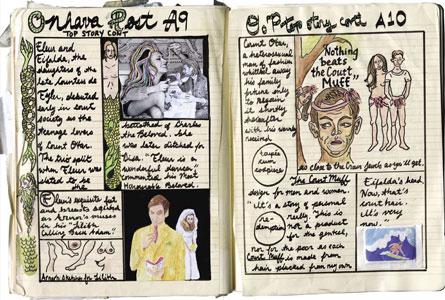 Onhava Post A9
TOP STORY CONT
Eleur and
Eifalda, the
daughters of the
late Countess de
Fyler, debuted
early in court
society as the
teenage lovers
of Count Otar.
The trio split
when Eleur was
slated to be
the
betrothed of Charles
the Beloved. She
was later ditched for
Disa. "Eleur is a
wonderful dancer"
commented his Most
Honourable Beloved.
Eleur's exquisite feet
and breasts sufficed
as Arnor's muses
in his "Lilith
Calling Back Adam"
Arnor's sketches for Lilith
O. P top story cont A10
Count Otar,
a heterosexual
man of fashion
whittled away
his family
fortune only
to regain
it shortly
thereafter
with his newly
received
"Nothing
beats
the Court
Muff"
as close to the Crown Jewels as you'll get.
The Court Muff
design for men and women.
"It's a story of personal
really. This is
re-
demption
not a product
for the genteel,
nor for the poor as each
Court Muff is made from
hair plucked from my own
Eifalda's head
Now, that's
court hair.
It's very
now.